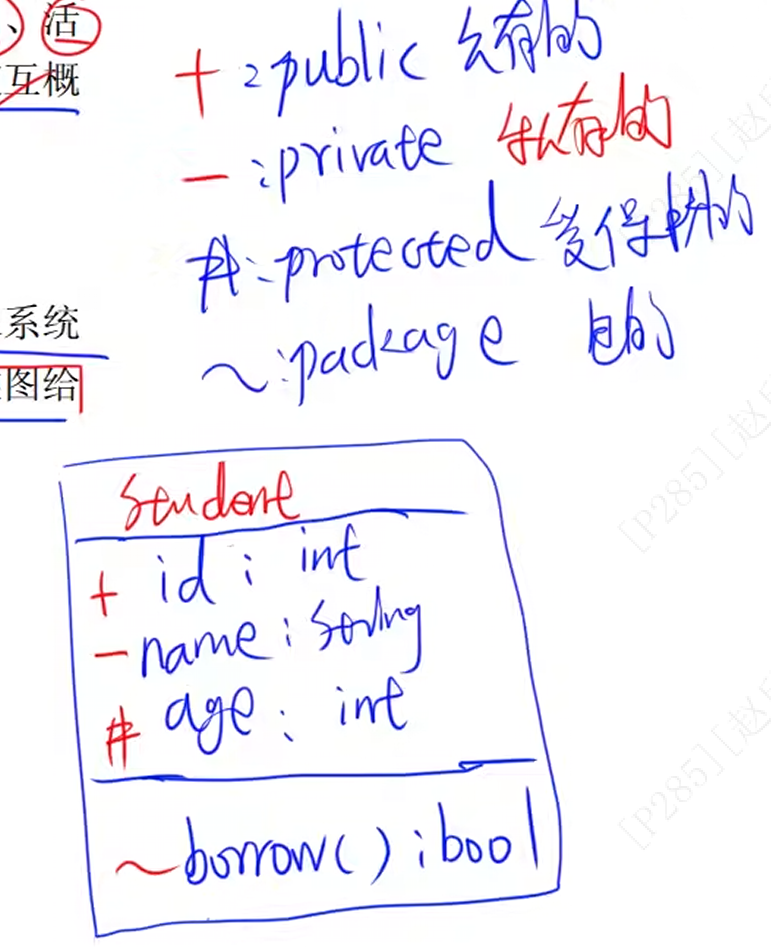 、活
互概
+:public 公有的
-:private 私有的
#:protected 受保护的
~:package 包的
系统
图给
Student
+ id: int
- name: String
# age: int
~borrow():bool
[P285][赵
[P285][赵